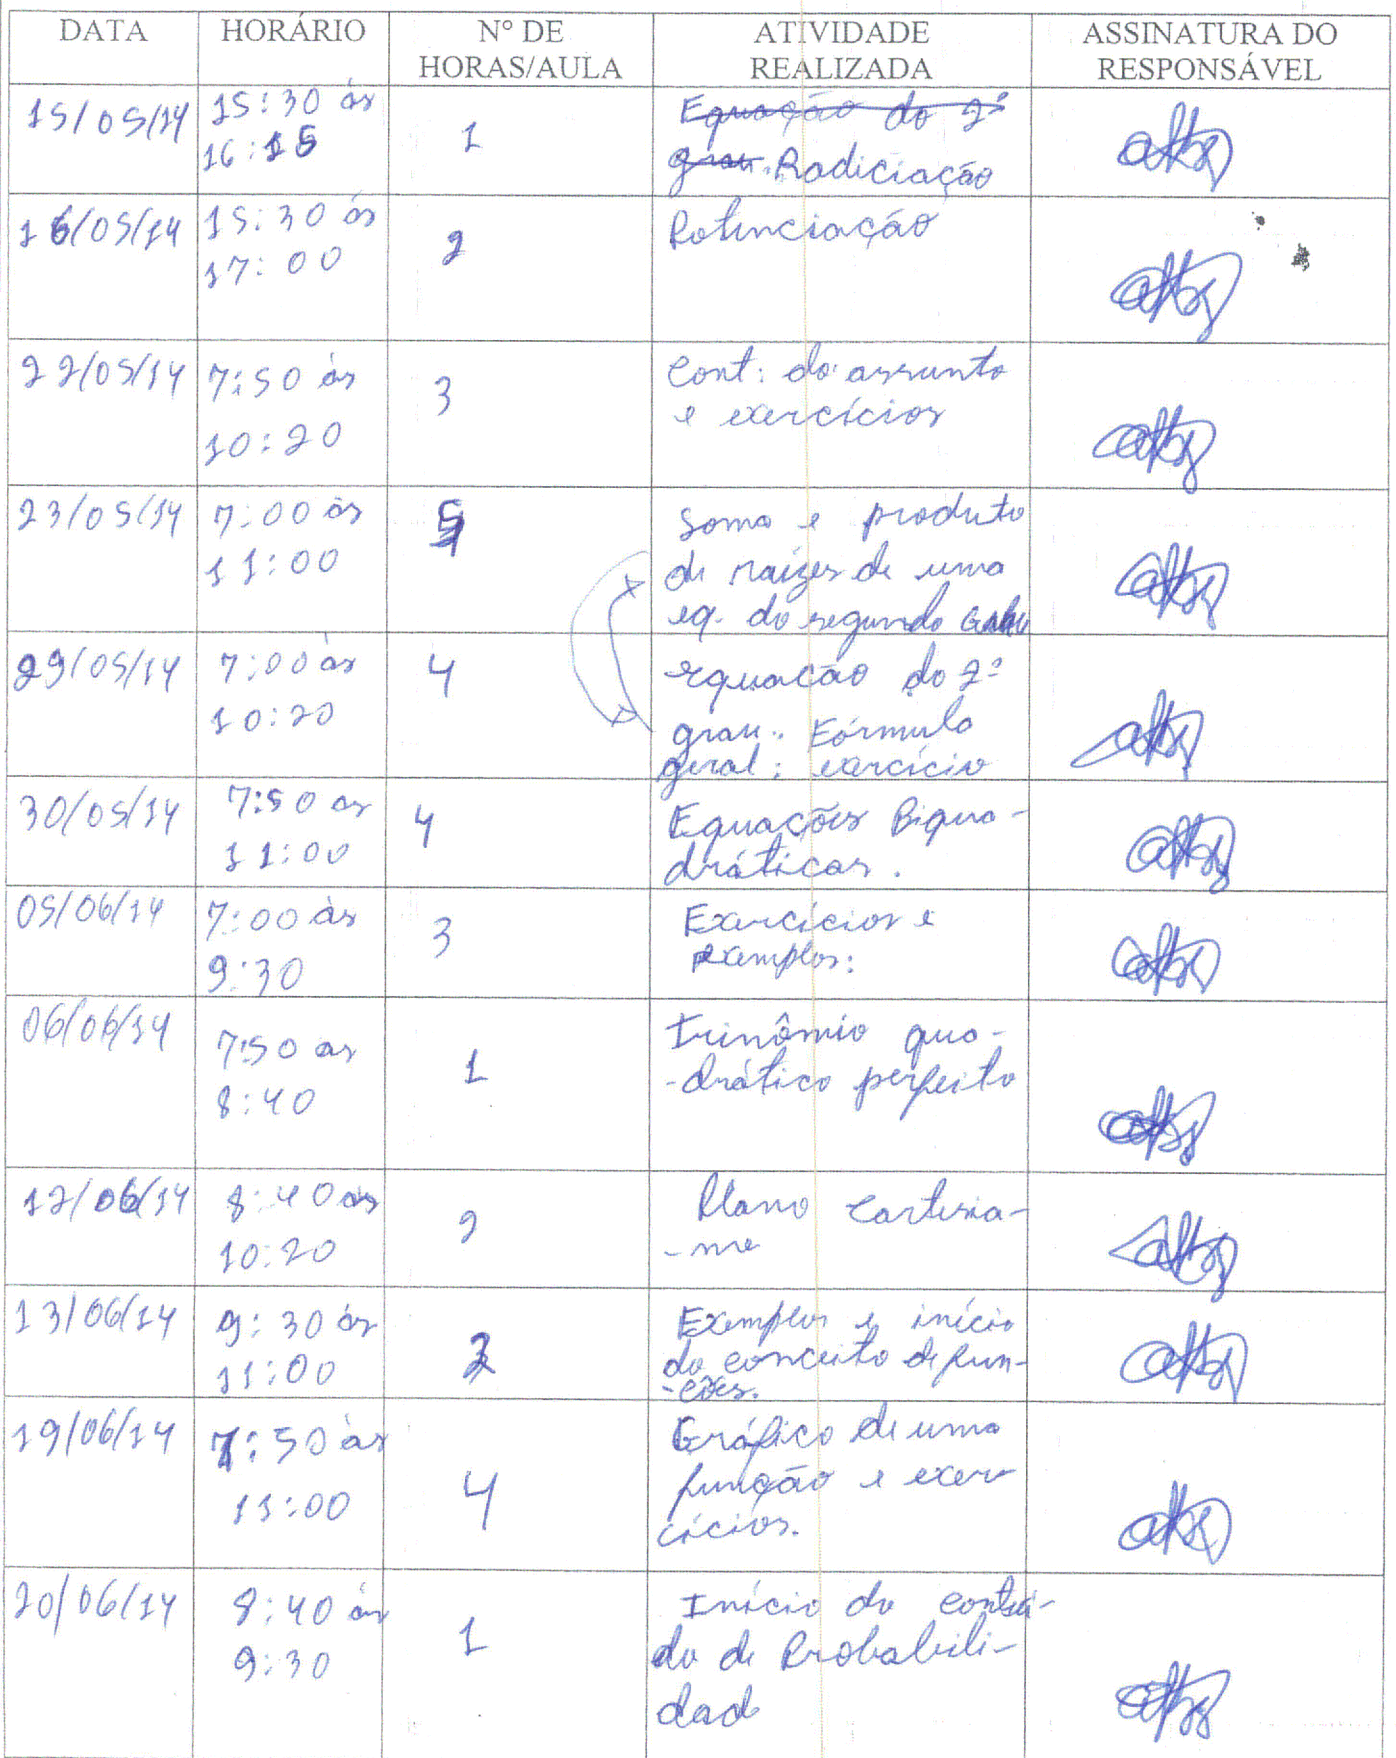 DATA HORÁRIO Nº DE HORAS/AULA ATIVIDADE REALIZADA ASSINATURA DO RESPONSÁVEL
15/05/14 15:30 ás 16:15 1 Equação do 2º grau. Radiciação
16/05/14 15:30 ás 17:00 2 Potenciação
22/05/14 7:50 ás 10:20 3 Cont: do assunto e exercícios
23/05/14 7:00 ás 11:00 5 Soma e produto de raízes de uma eq. do segundo Grau
29/05/14 7:00 às 10:20 4 equacão do 2º grau: Fórmula geral; exercício
30/05/14 7:50 as 11:00 4 Equações Biqua-dráticas.
05/06/14 7:00 às 9:30 3 Exercícios e exemplos:
06/06/14 7:50 as 8:40 1 Trinômio qua--drático perfeito
12/06/14 8:40 às 10:20 2 Plano Cartesia--no
13/06/14 9:30 às 11:00 2 Exemplos e início do conceito de fun--ções.
19/06/14 7:50 às 11:00 4 Gráfico de uma função e exer-cícios.
20/06/14 8:40 às 9:30 1 Início do conteú-do de Probabili-dad